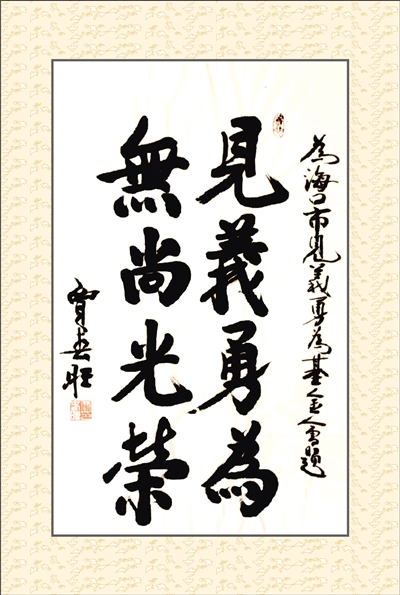 為海口市見義勇為基金會題
見義勇為
無尚光榮
賈春旺